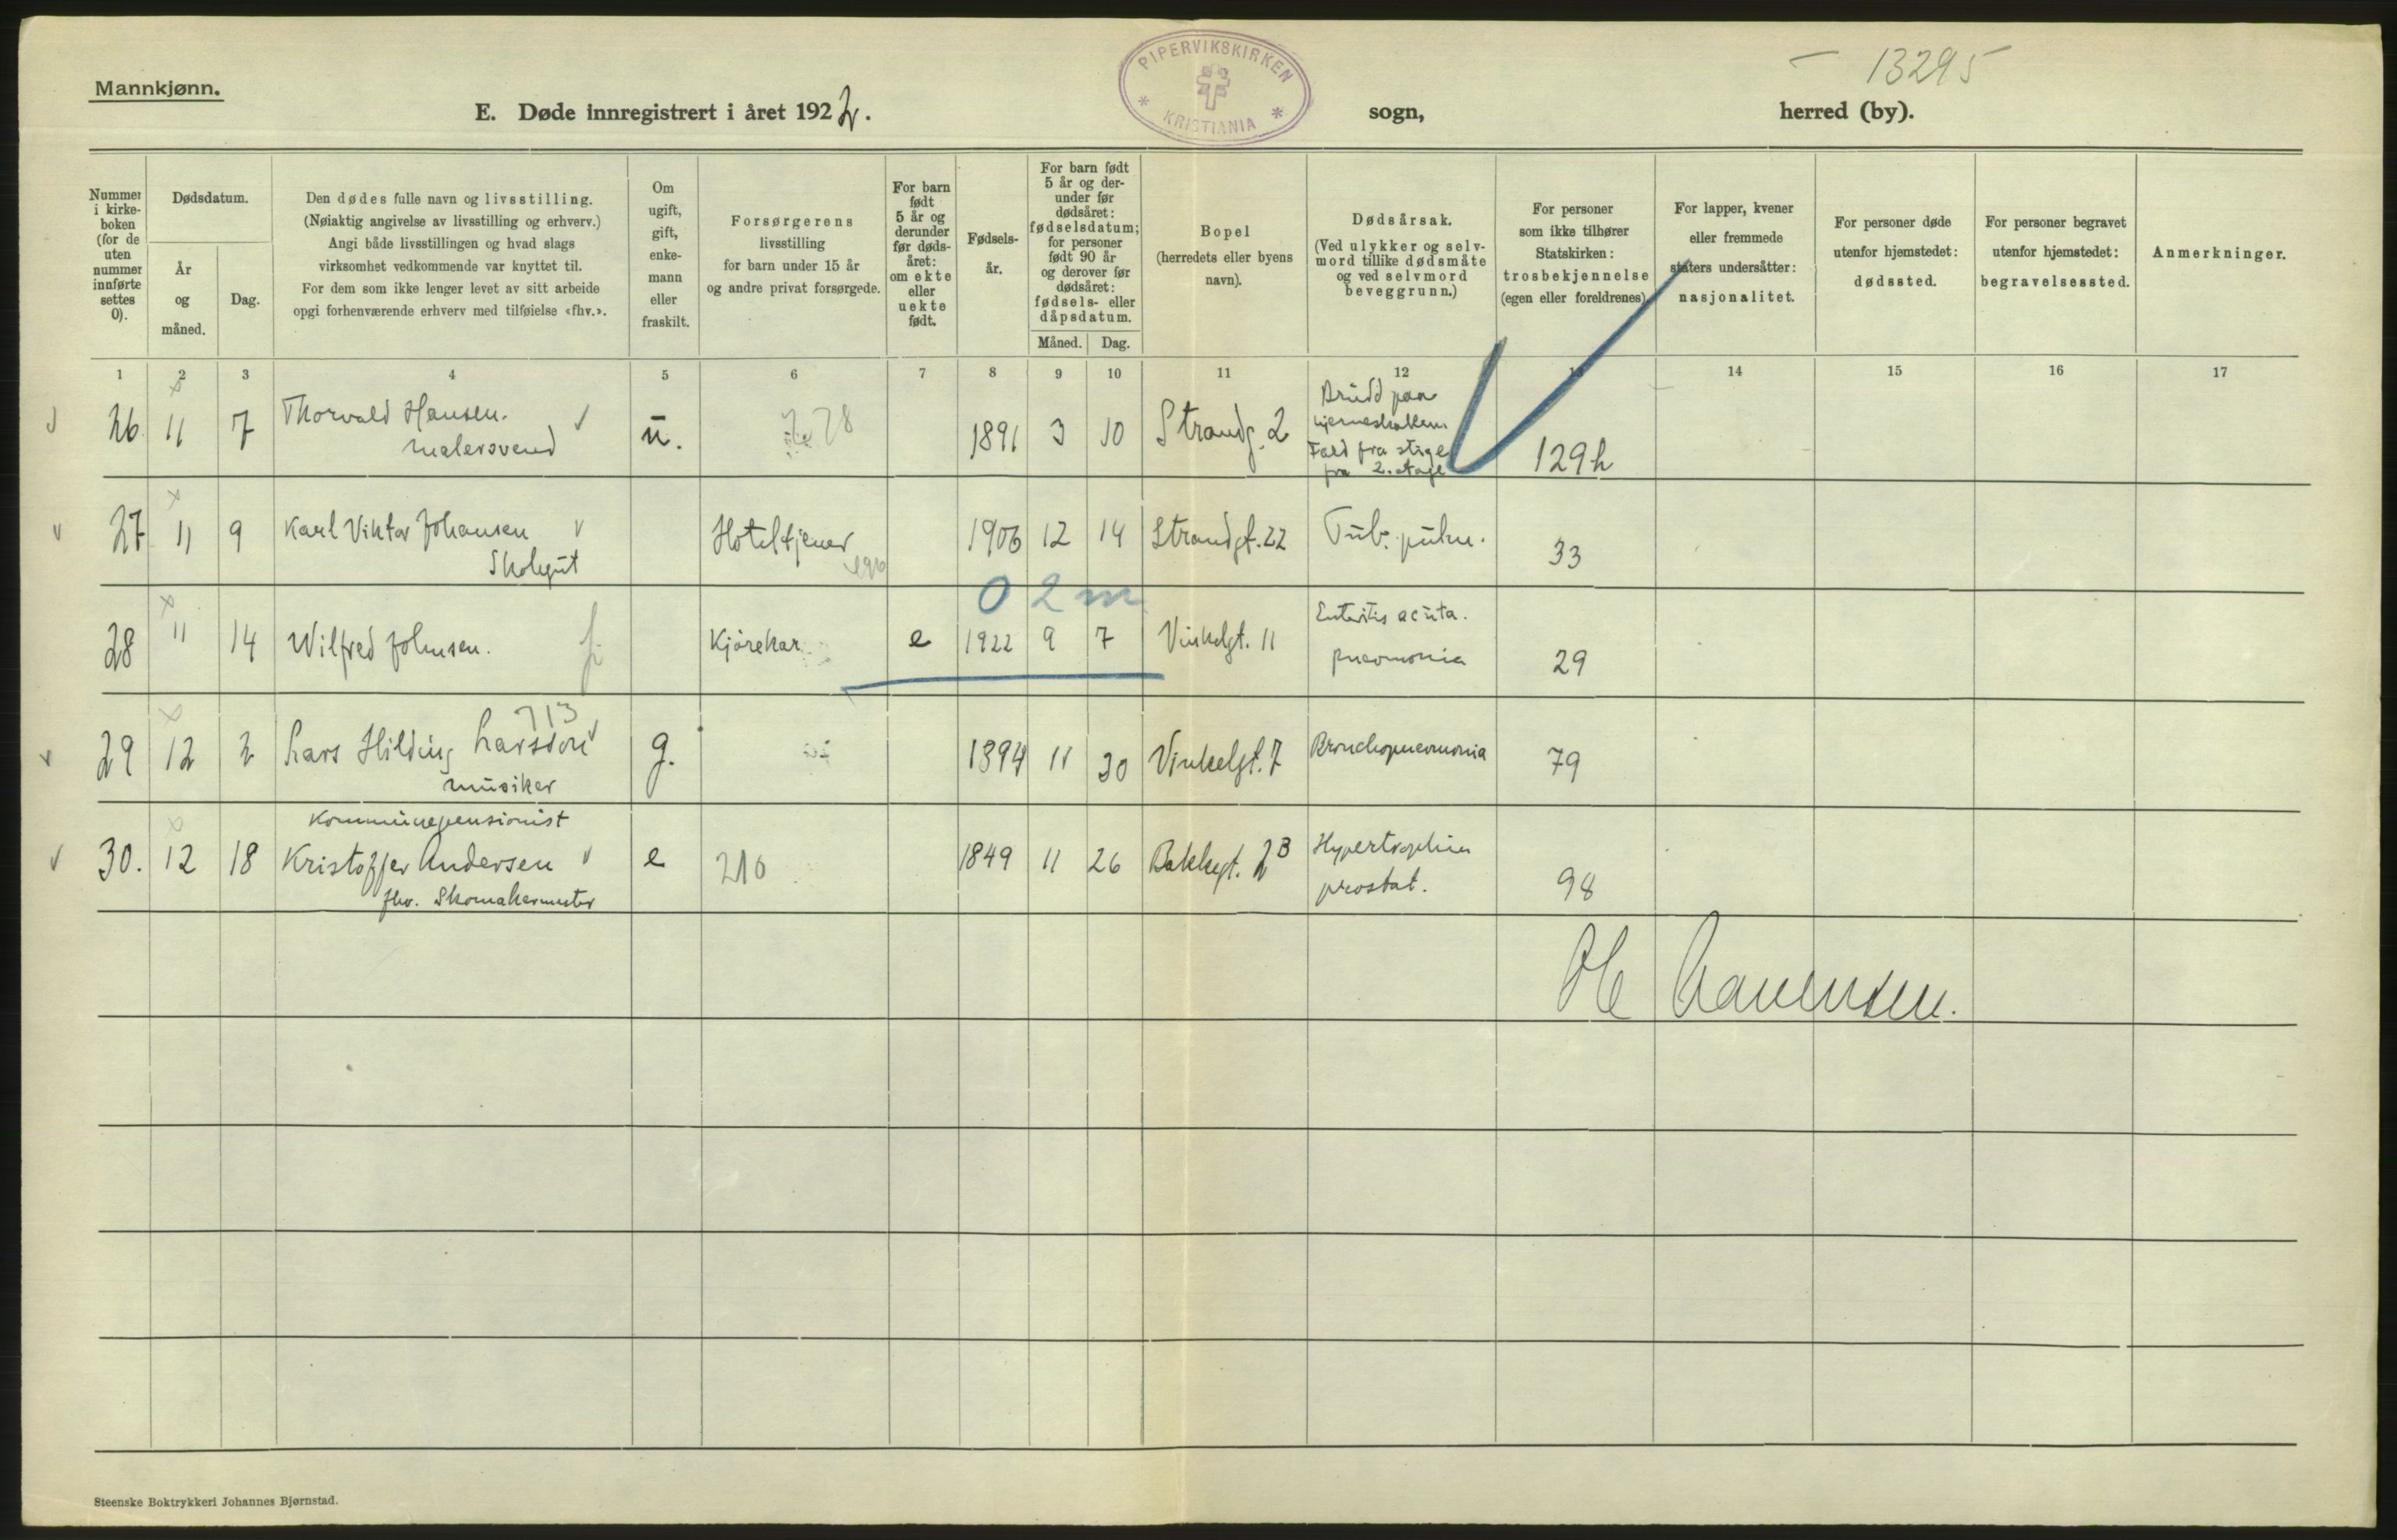 13295
Mannkjønn.
E. Døde innregistrert i året 1922.
PIPERVIKSKIRKEN
* KRISTIANIA *
sogn,
herred (by).
Nummer
i kirke-
boken
(for de
uten
nummer
innførte
settes
0).
Dødsdatum.
År
og
måned.
Dag.
Den dødes fulle navn og livsstilling.
(Nøiaktig angivelse av livsstilling og erhverv.)
Angi både livsstillingen og hvad slags
virksomhet vedkommende var knyttet til.
For dem som ikke lenger levet av sitt arbeide
opgi forhenværende erhverv med tilføielse «fhv.».
Om
ugift,
gift,
enke-
mann
eller
fraskilt.
Forsørgerens
livsstilling
for barn under 15 år
og andre privat forsørgede.
For barn
født
5 år og
derunder
før døds-
året:
om ekte
eller
uekte
født.
Fødsels-
år.
For barn født
5 år og der-
under før
dødsåret:
fødselsdatum;
for personer
født 90 år
og derover før
dødsåret:
fødsels- eller
dåpsdatum.
Måned. Dag.
Bopel
(herredets eller byens
navn).
Dødsårsak.
(Ved ulykker og selv-
mord tillike dødsmåte
og ved selvmord
beveggrunn.)
For personer
som ikke tilhører
Statskirken:
trosbekjennelse
(egen eller foreldrenes).
For lapper, kvener
eller fremmede
staters undersåtter:
nasjonalitet.
For personer døde
utenfor hjemstedet:
dødssted.
For personer begravet
utenfor hjemstedet:
begravelsessted.
Anmerkninger.
1 2 3 4 5 6 7 8 9 10 11 12 13 14 15 16 17
26 11 7 Thorvald Hansen. u. 78 1891 3 10 Strandg. 2 Brudd paa
hjerneskallen.
malersvend Fald fra stige
fra 2. etage 129h
27 11 9 Karl Viktor Johansen Hoteltjener 1906 12 14 Strandgt. 22 Tub. pulm. 33
Skolegut
0 2 m
28 11 14 Wilfred Johnsen. Kjørekar e 1922 9 7 Vinkelgt. 11 Enteritis acuta.
pneumonia 29
713
29 12 2 Lars Hilding Larsson g. 1894 11 30 Vinkelgt. 7 Bronchopneumonia 79
musiker
Kommunepensionist
30. 12 18 Kristoffer Andersen e 210 1849 11 26 Bakkegt. 2B Hypertrophia
prostat. 98
fhv. Skomakermester
Steenske Boktrykkeri Johannes Bjørnstad.